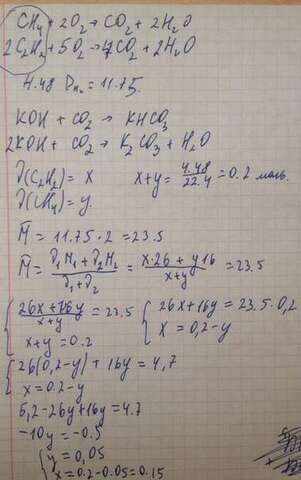 CH₄ + 2O₂ → CO₂ + 2H₂O
2C₂H₂ + 5O₂ → 4CO₂ + 2H₂O
4.48 D_H₂ = 11.75.
KOH + CO₂ → KHCO₃
2KOH + CO₂ → K₂CO₃ + H₂O
ν(C₂H₂) = x x+y = 4.48/22.4 = 0.2 моль.
ν(CH₄) = y
M̄ = 11.75 · 2 = 23.5
M̄ = (ν₁M₁ + ν₂M₂)/(ν₁ + ν₂) = (x·26 + y16)/(x+y) = 23.5
{ (26x + 16y)/(x+y) = 23.5 { 26x + 16y = 23.5 · 0,2
x+y = 0.2 x = 0,2 - y
{ 26(0,2-y) + 16y = 4,7
x = 0.2 - y
5,2 - 26y + 16y = 4.7
-10y = -0.5
{ y = 0,05
x = 0.2 - 0.05 = 0.15